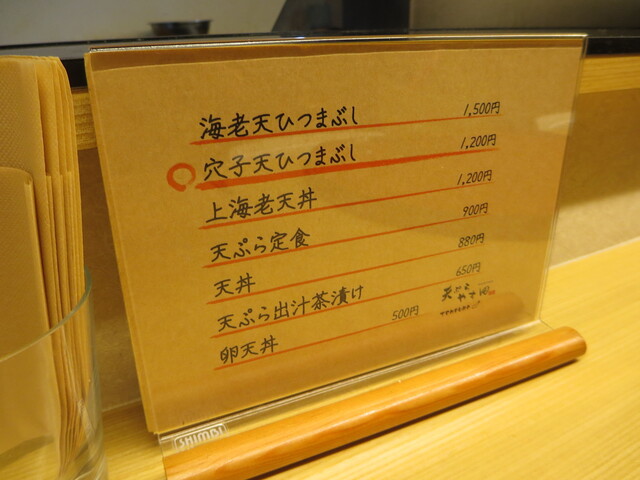 海老天ひつまぶし 1,500円
穴子天ひつまぶし 1,200円
上海老天丼 1,200円
天ぷら定食 900円
天丼 880円
天ぷら出汁茶漬け 650円
卵天丼 500円
天ぷら
SHIMBI